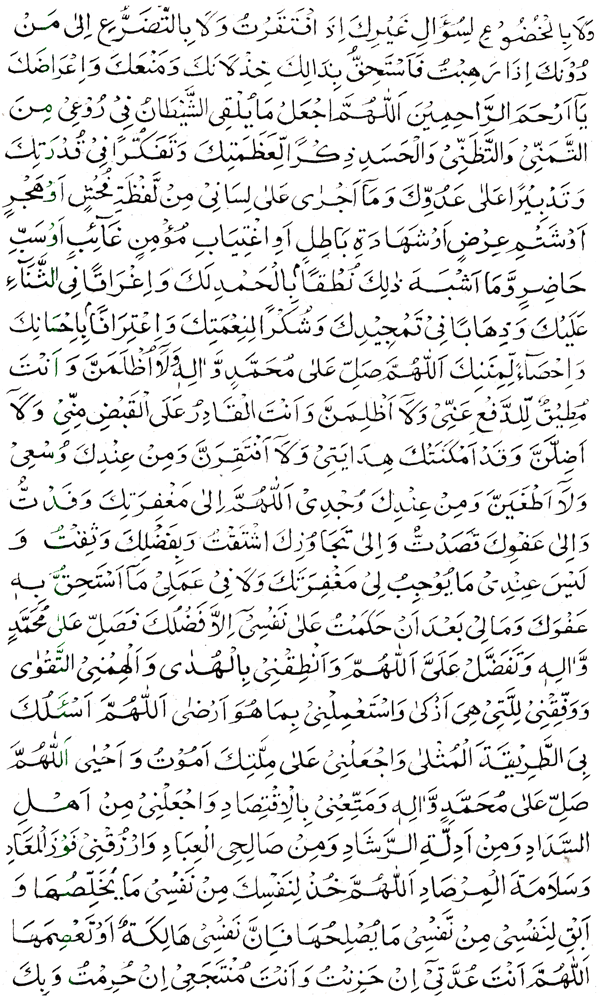 وَلَا بِالْخُضُوْعِ لِسُؤَالِ غَيْرِكَ اِذَا افْتَقَرْتُ وَلَا بِالتَّضَرُّعِ اِلٰى مَنْ
دُوْنَكَ اِذَا رَهِبْتُ فَاَسْتَحِقَّ بِذَالِكَ خِذْلَانَكَ وَمَنْعَكَ وَاِعْرَاضَكَ
يَآ اَرْحَمَ الرَّاحِمِيْنَ اَللّٰهُمَّ اجْعَلْ مَا يُلْقِى الشَّيْطَانُ فِىْ رُوْعِىْ مِنَ
التَّمَنِّىْ وَالتَّظَنِّىْ وَالْحَسَدِ ذِكْرًا لِّعَظَمَتِكَ وَتَفَكُّرًا فِىْ قُدْرَتِكَ
وَتَدْبِيْرًا عَلٰى عَدُوِّكَ وَمَآ اَجْرٰى عَلٰى لِسَانِىْ مِنْ لَّفْظَةِ فُحْشٍ اَوْ هُجْرٍ
اَوْ شَتْمِ عِرْضٍ اَوْ شَهَادَةِ بَاطِلٍ اَوِ اغْتِيَابِ مُؤْمِنٍ غَآئِبٍ اَوْ سَبِّ
حَاضِرٍ وَّمَا اَشْبَهَ ذٰلِكَ نُطْقًا بِالْحَمْدِ لَكَ وَاِغْرَاقًا فِى الثَّنَآءِ
عَلَيْكَ وَذِهَابًا فِىْ تَمْجِيْدِكَ وَشُكْرًا لِنِعْمَتِكَ وَاِعْتِرَافًا بِاِحْسَانِكَ
وَاِحْصَآءً لِّمِنَنِكَ اَللّٰهُمَّ صَلِّ عَلٰى مُحَمَّدٍ وَّاٰلِهٖ وَلَا اُظْلَمَنَّ وَاَنْتَ
مُطِيْقٌ لِّلدَّفْعِ عَنِّىْ وَلَآ اَظْلِمَنَّ وَاَنْتَ الْقَادِرُ عَلَى الْقَبْضِ مِنِّىْ وَلَآ
اَضِلَّنَّ وَقَدْ اَمْكَنَتْكَ هِدَايَتِىْ وَلَآ اَفْتَقِرَنَّ وَمِنْ عِنْدِكَ وُسْعِىْ
وَلَآ اَطْغَيَنَّ وَمِنْ عِنْدِكَ وُجْدِىْ اَللّٰهُمَّ اِلٰى مَغْفِرَتِكَ وَفَدْتُّ
وَاِلٰى عَفْوِكَ قَصَدْتُّ وَاِلٰى تَجَاوُزِكَ اشْتَقْتُ وَبِفَضْلِكَ وَثِقْتُ وَ
لَيْسَ عِنْدِىْ مَا يُوْجِبُ لِىْ مَغْفِرَتَكَ وَلَا فِىْ عَمَلِىْ مَآ اَسْتَحِقُّ بِهٖ
عَفْوَكَ وَمَالِىْ بَعْدَ اَنْ حَكَمْتُ عَلٰى نَفْسِىْٓ اِلَّا فَضْلُكَ فَصَلِّ عَلٰى مُحَمَّدٍ
وَّاٰلِهٖ وَتَفَضَّلْ عَلَىَّ اَللّٰهُمَّ وَاَنْطِقْنِىْ بِالْهُدٰى وَاَلْهِمْنِى التَّقْوٰى
وَوَفِّقْنِىْ لِلَّتِىْ هِىَ اَزْكٰى وَاسْتَعْمِلْنِىْ بِمَا هُوَ اَرْضٰى اَللّٰهُمَّ اسْئَلُكَ
بِىَ الطَّرِيْقَةَ الْمُثْلٰى وَاجْعَلْنِىْ عَلٰى مِلَّتِكَ اَمُوْتُ وَاَحْيٰى اَللّٰهُمَّ
صَلِّ عَلٰى مُحَمَّدٍ وَّاٰلِهٖ وَمَتِّعْنِىْ بِالْاِقْتِصَادِ وَاجْعَلْنِىْ مِنْ اَهْلِ
السَّدَادِ وَمِنْ اَدِلَّةِ الرَّشَادِ وَمِنْ صَالِحِى الْعِبَادِ وَارْزُقْنِىْ فَوْزَ الْمَعَادِ
وَسَلَامَةَ الْمِرْصَادِ اَللّٰهُمَّ خُذْ لِنَفْسِكَ مِنْ نَفْسِىْ مَا يُخَلِّصُهَا وَ
اَبْقِ لِنَفْسِىْ مِنْ نَّفْسِىْ مَا يُصْلِحُهَا فَاِنَّ نَفْسِىْ هَالِكَةٌ اَوْ تَعْصِمَهَا
اَللّٰهُمَّ اَنْتَ عُدَّتِىْٓ اِنْ حَزِنْتُ وَاَنْتَ مُنْتَجَعِىْ اِنْ حُرِمْتُ وَبِكَ